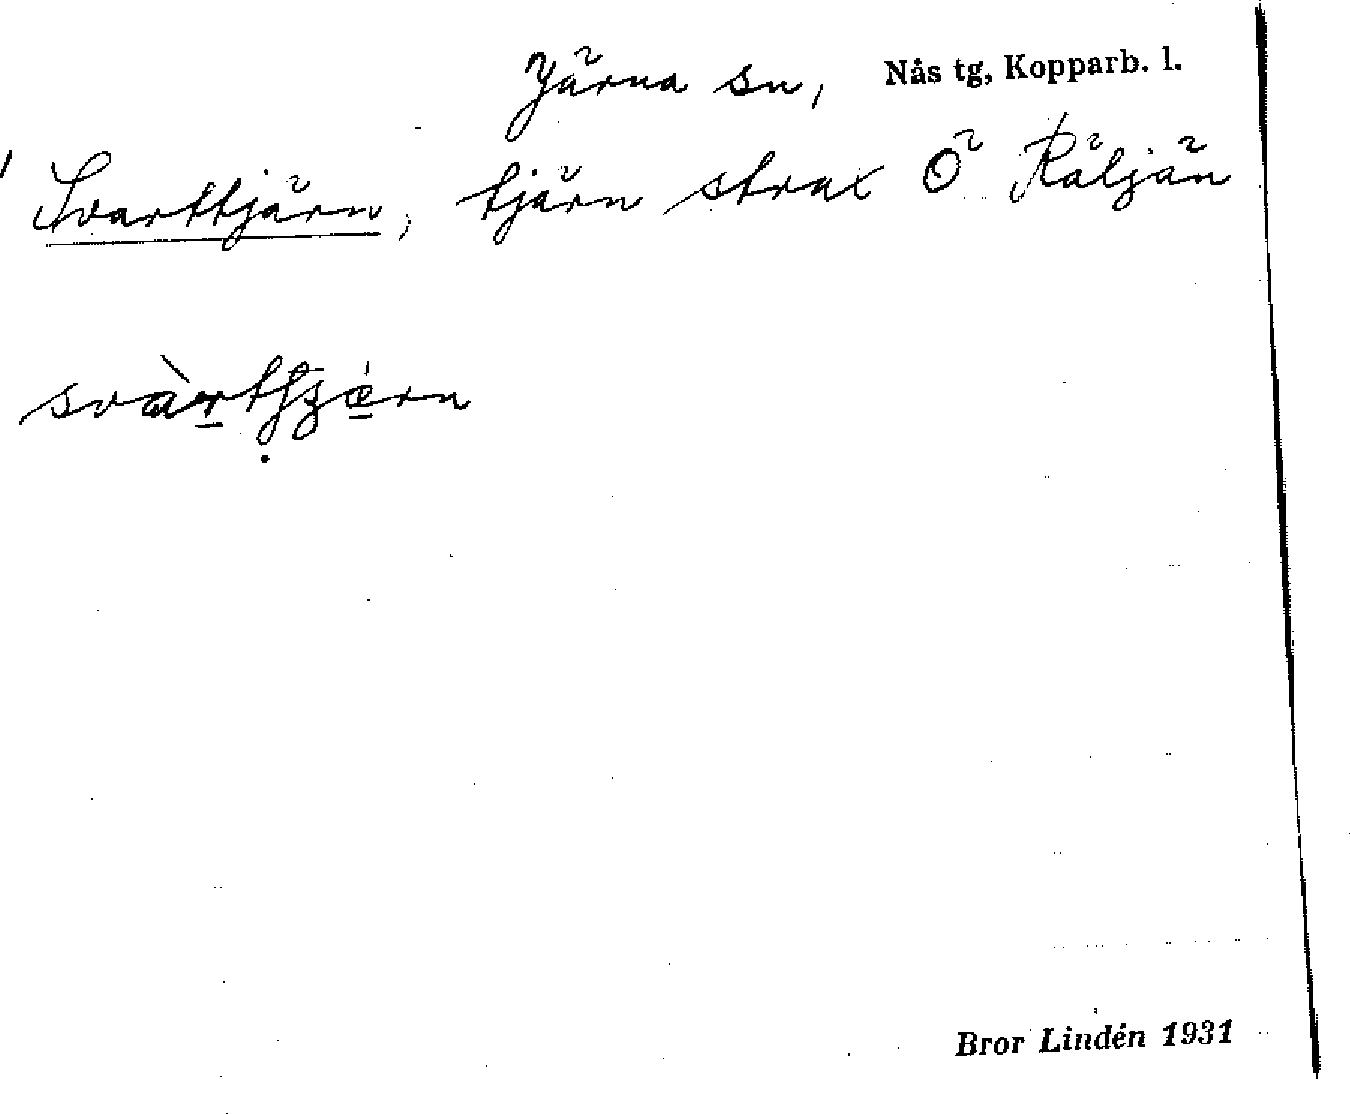 Järna sn, Nås tg, Kopparb. l.
Svarttjärn, tjärn strax Ö Räljän
Bror Lindén 1931